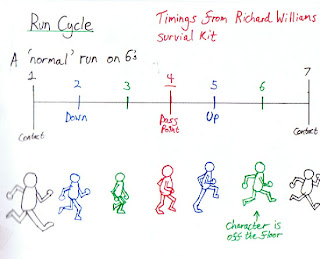 Run Cycle
Timings From Richard Williams
Survial Kit
A 'normal' run on 6's
1 2 3 4 5 6 7
Contact Down Pass Point Up Contact
Character is
off the floor